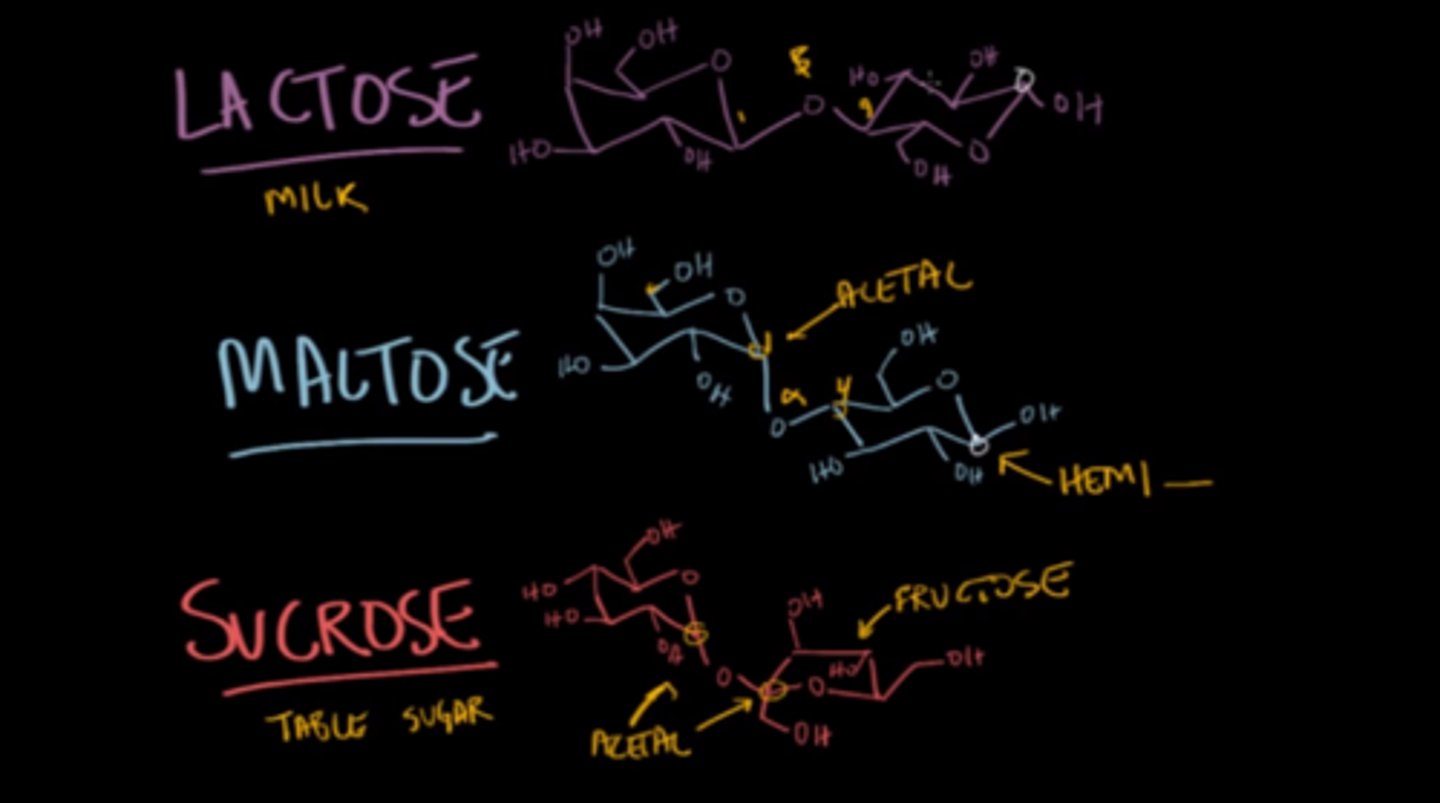 LACTOSE
MILK
OH
OH
O
HO
OH
1
β
O
HO
OH
OH
O
OH
MALTOSE
OH
OH
O
HO
OH
1
ACETAL
α
O
4
OH
O
OH
HO
OH
HEMI —
SUCROSE
TABLE SUGAR
OH
HO
HO
O
OH
O
ACETAL
OH
FRUCTOSE
HO
O
OH
OH